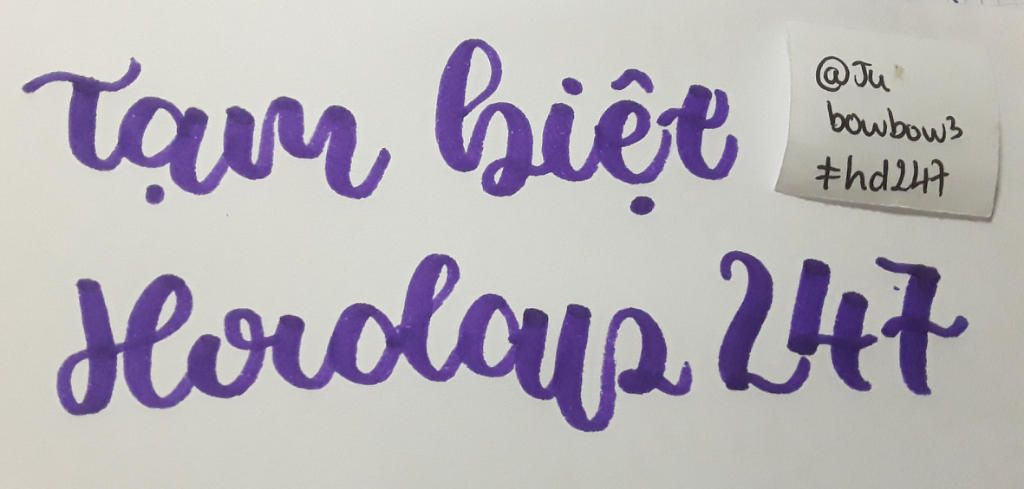 Tạm biệt
Hoidap 247
@Ju
bowbow3
#hd247